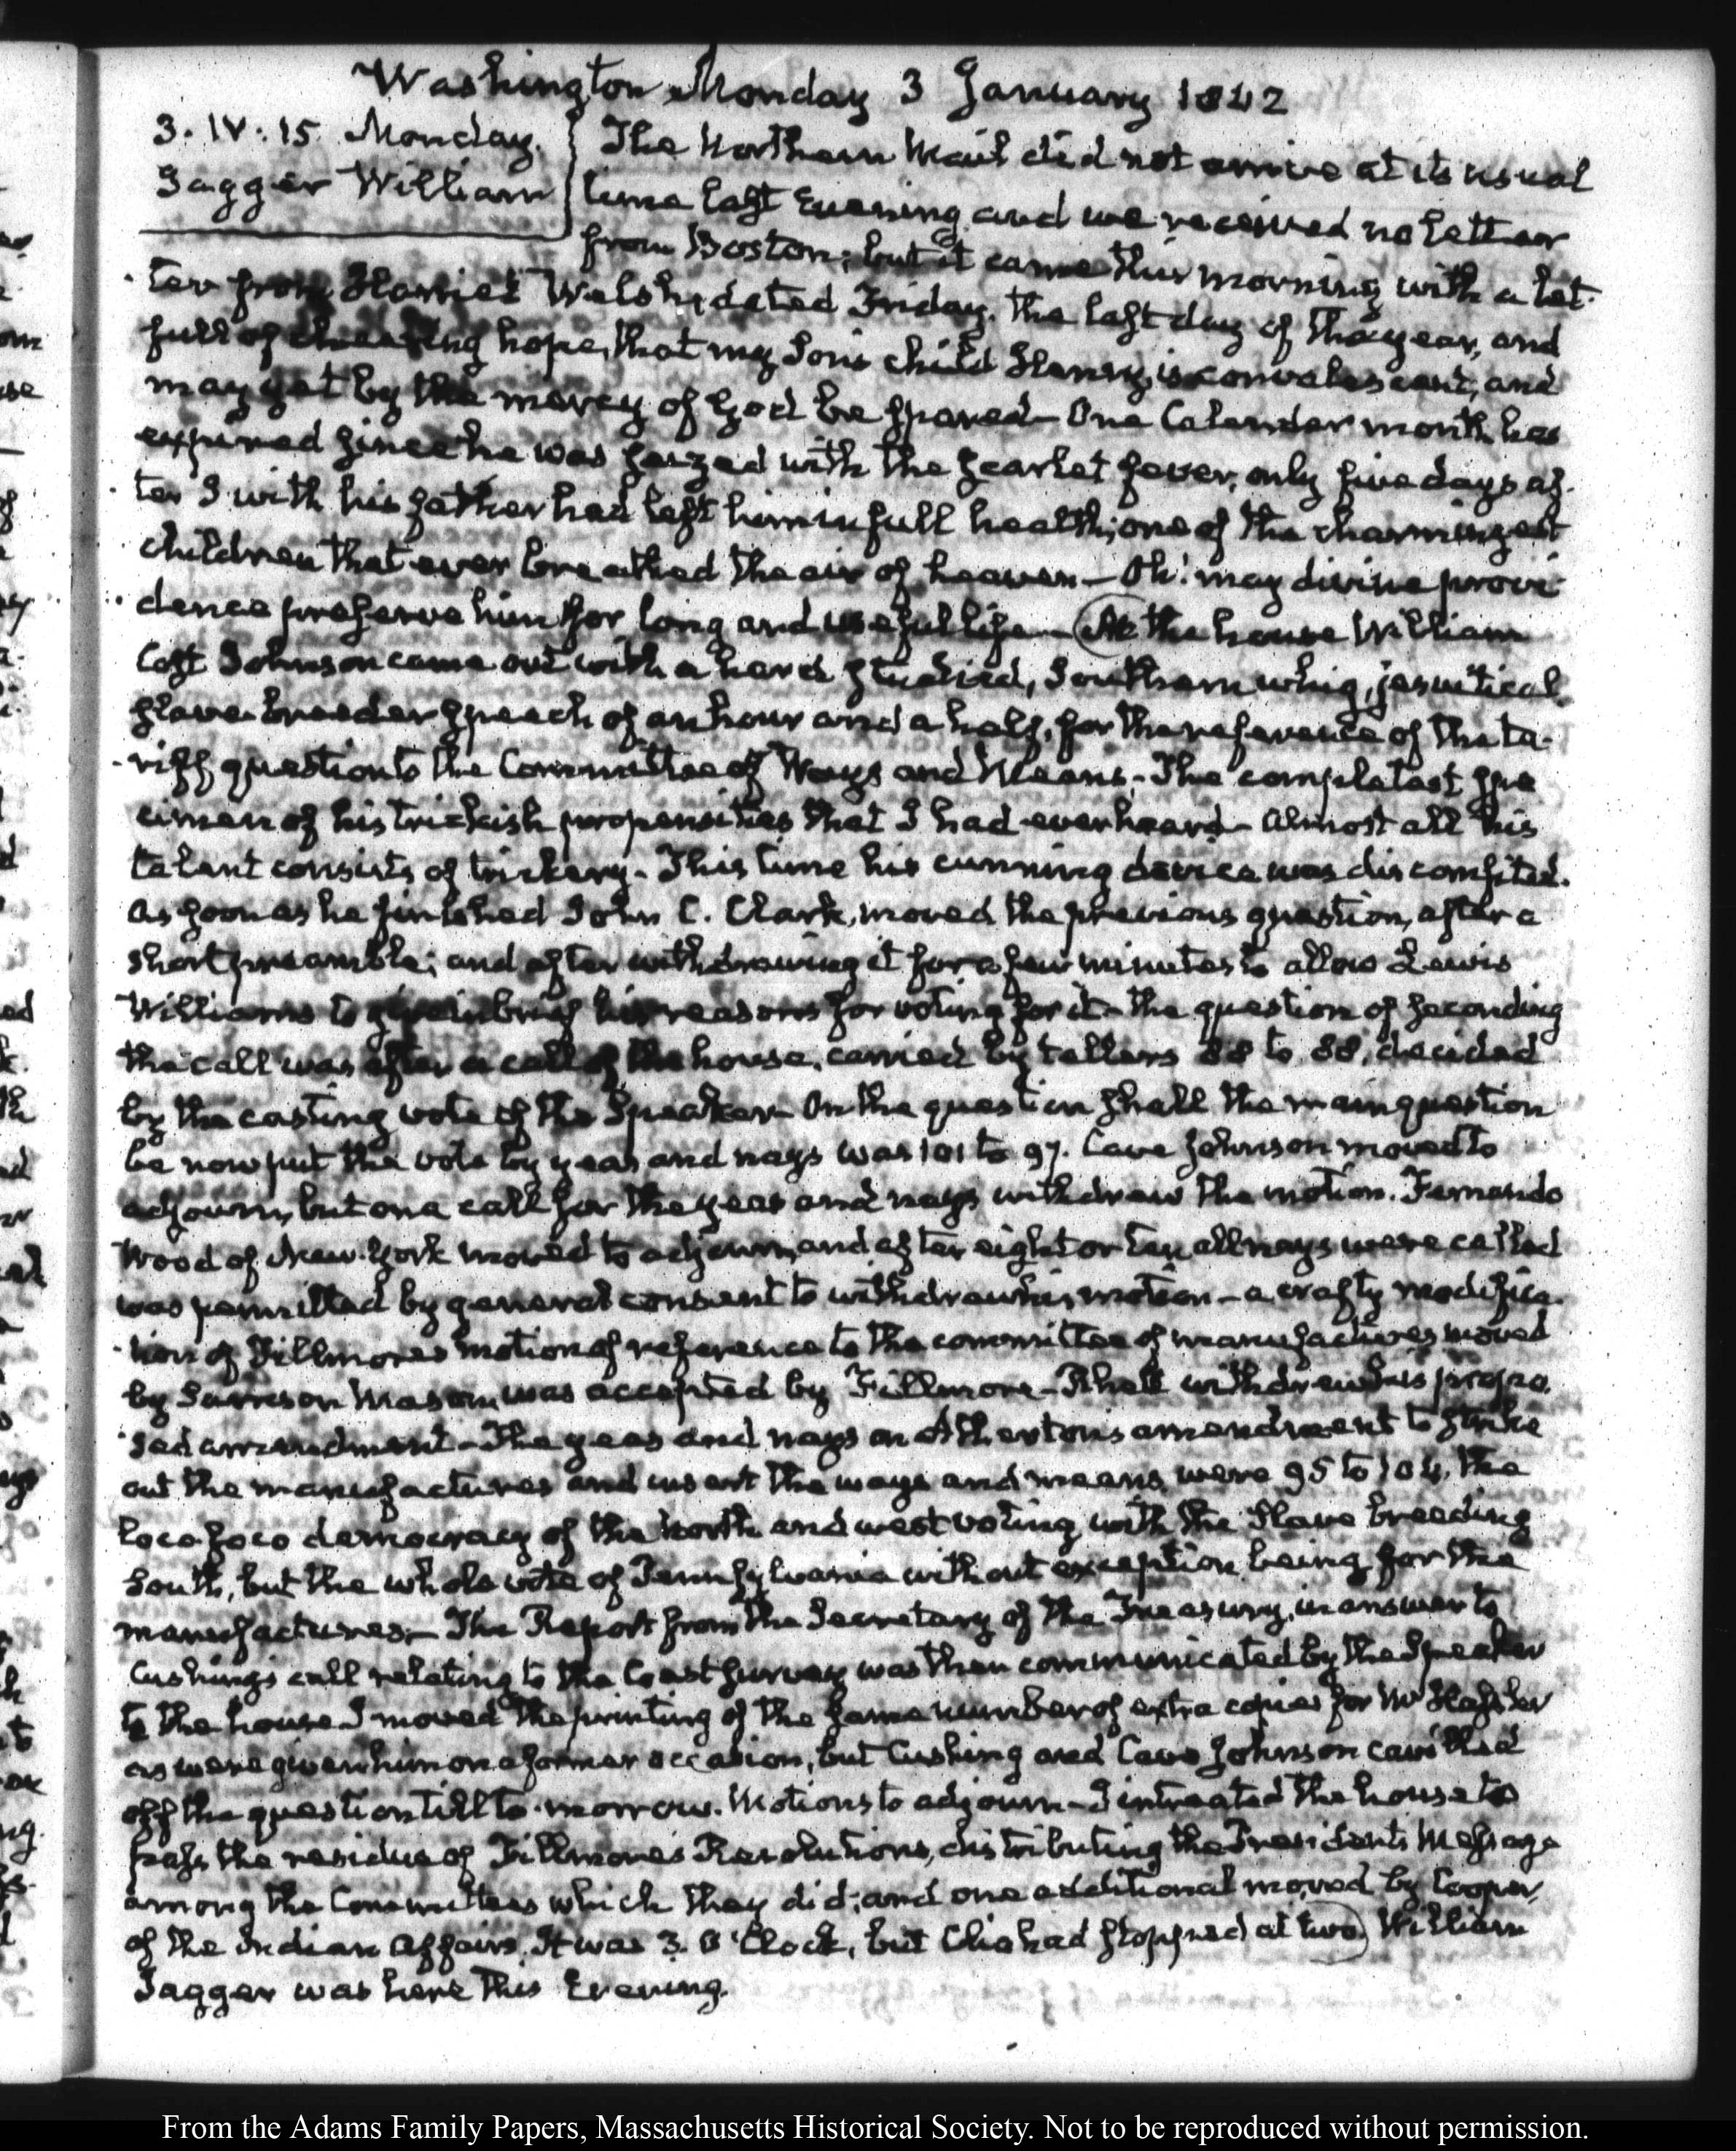 Washington Monday 3 January 1842
3. IV:15. Monday.
Jagger William
The Northern Mail did not arrive at its usual
time last Evening and we received no letter
from Boston; but it came this morning with a let-
ter from Harriet Welsh, dated Friday, the last day of the year, and
full of cheering hope, that my Son's child Henry, is convalescent, and
may yet by the mercy of God be spared— One Calendar month has
expired since he was seized with the scarlet fever, only five days af-
ter I with his father had left him in full health; one of the charmingest
children that ever breathed the air of heaven— Oh! may divine provi-
dence preserve him for long and useful life— At the house William
Cost Johnson came out with a hard studied, Southern whig, jesuitical
slave-breeder speech of an hour and a half, for the reference of the ta-
riff question to the Committee of Ways and Means,— The completest spe
cimen of his trickish propensities that I had ever heard— Almost all his
talent consists of trickery. This time his cunning device was discomfited.
As soon as he finished John C. Clark, moved the previous question, after a
short preamble; and after withdrawing it for a few minutes to allow Lewis
Williams to give in brief his reasons for voting for it— the question of seconding
the call was after a call of the house, carried by tellers 88 to 88, decided
by the casting vote of the Speaker— On the question shall the main question
be now put the vote by yeas and nays was 101 to 97. Cave Johnson moved to
adjourn, but on a call for the yeas and nays withdrew the motion. Fernando
Wood of New-York moved to adjourn, and after eight or ten all nays were called
was permitted by general consent to withdraw his motion— a crafty modifica-
tion of Fillmore's motion of reference to the committee of manufactures moved
by Samson Mason, was accepted by Fillmore— Rhett withdrew his propo-
sed amendment— The yeas and nays on Atherton's amendment to strike
out the manufactures and insert the ways and means, were 95 to 104, the
loco foco democracy of the North and west voting with the Slave breeding
South, but the whole vote of Pennsylvania without exception being for the
manufactures.— The Report from the Secretary of the Treasury, in answer to
Cushing's call relating to the Coast survey was then communicated by the Speaker
to the house. I moved the printing of the same number of extra copies for Mr Hassler
as were given him on a former occasion, but Cushing and Cave Johnson cavilled
off the question till to-morrow. Motions to adjourn— I intreated the house to
pass the residue of Fillmore's Resolutions, distributing the President's Message
among the Committees which they did; and one additional moved by Cooper,
of the Indian Affairs. It was 3. O'Clock, but Clio had stopped at two. William
Jagger was here this Evening.
From the Adams Family Papers, Massachusetts Historical Society. Not to be reproduced without permission.